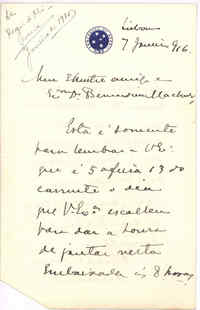 Lisboa
7 Janeiro 916.
Meu Illustre amigo e
Sr. Dr. Bernardino Machado,
Esta é somente
para lembrar a V. Ex.
que é 5ª feira 13 do
corrente o dia
que V. Exª escolheu
para dar a honra
de jantar nesta
Embaixada ás 8 horas